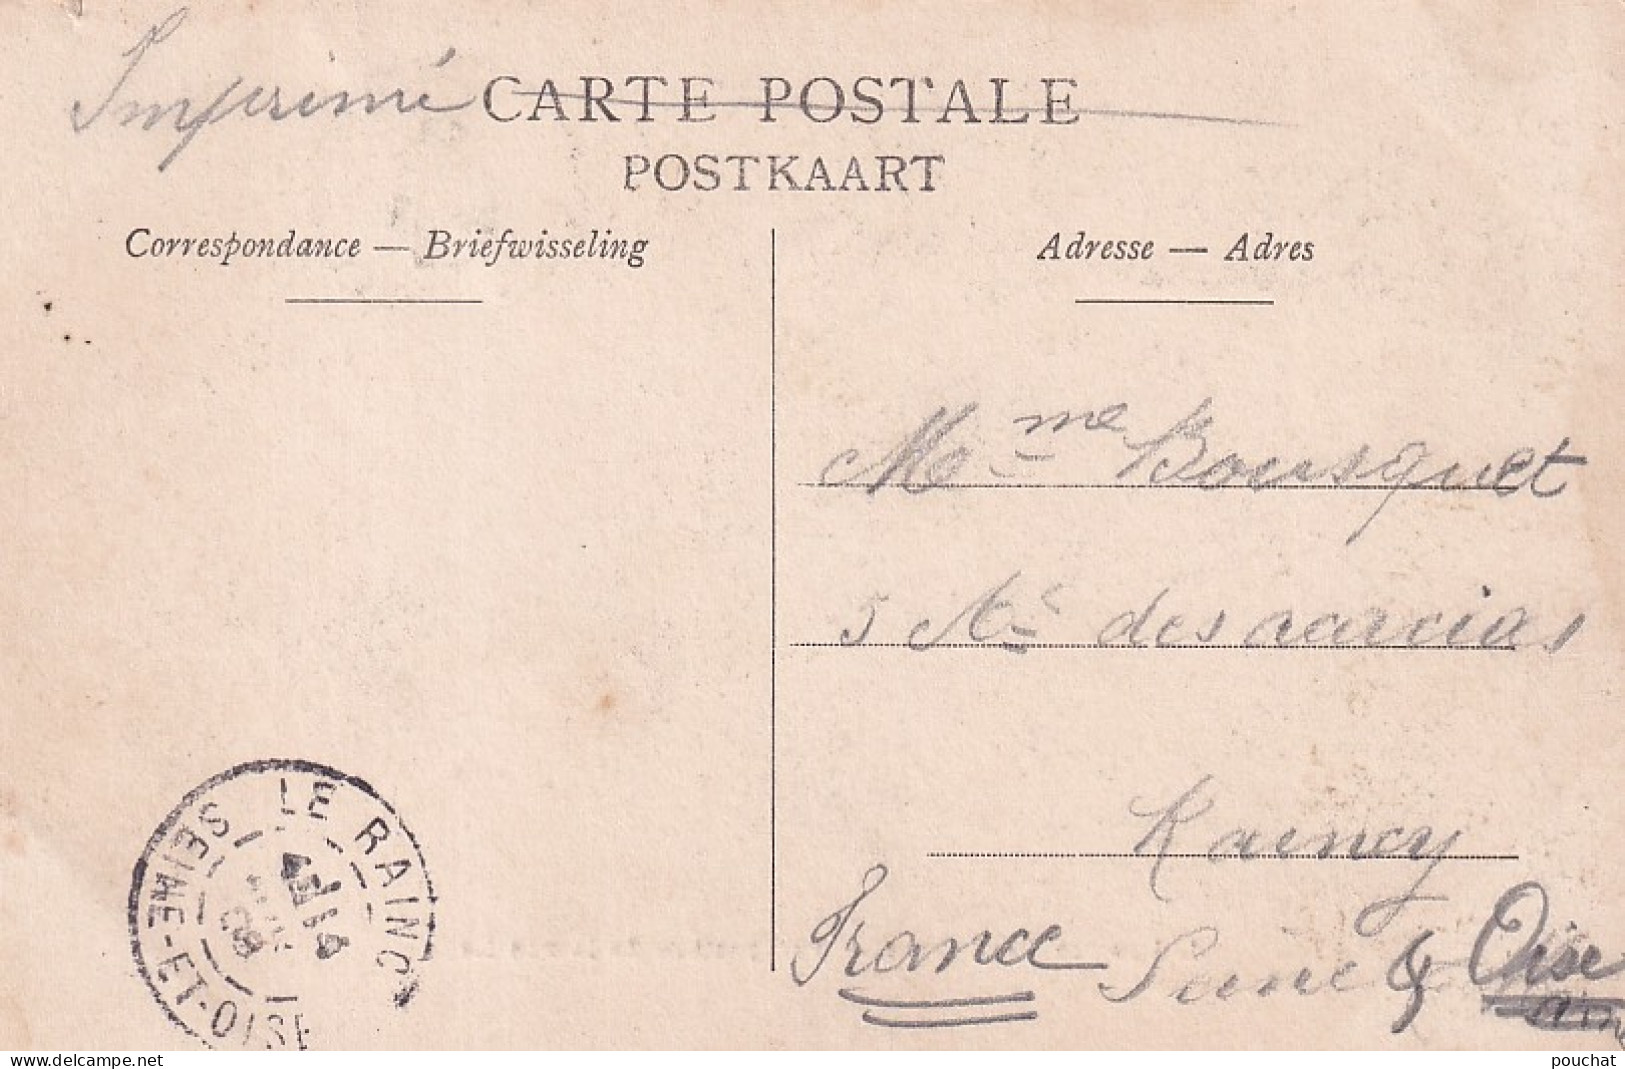 Imprimé
CARTE POSTALE
POSTKAART
Correspondance — Briefwisseling
Adresse — Adres
Mme Bousquet
5 des
Raincy
France Seine & Oise
LE RAINCY
SEINE-ET-OISE
08
www.delcampe.net
pouchat